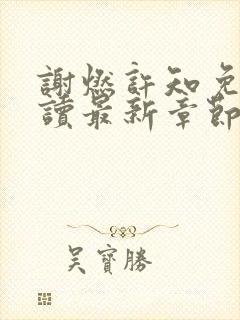 謝燃許知免
讀最新章節
吳寶勝